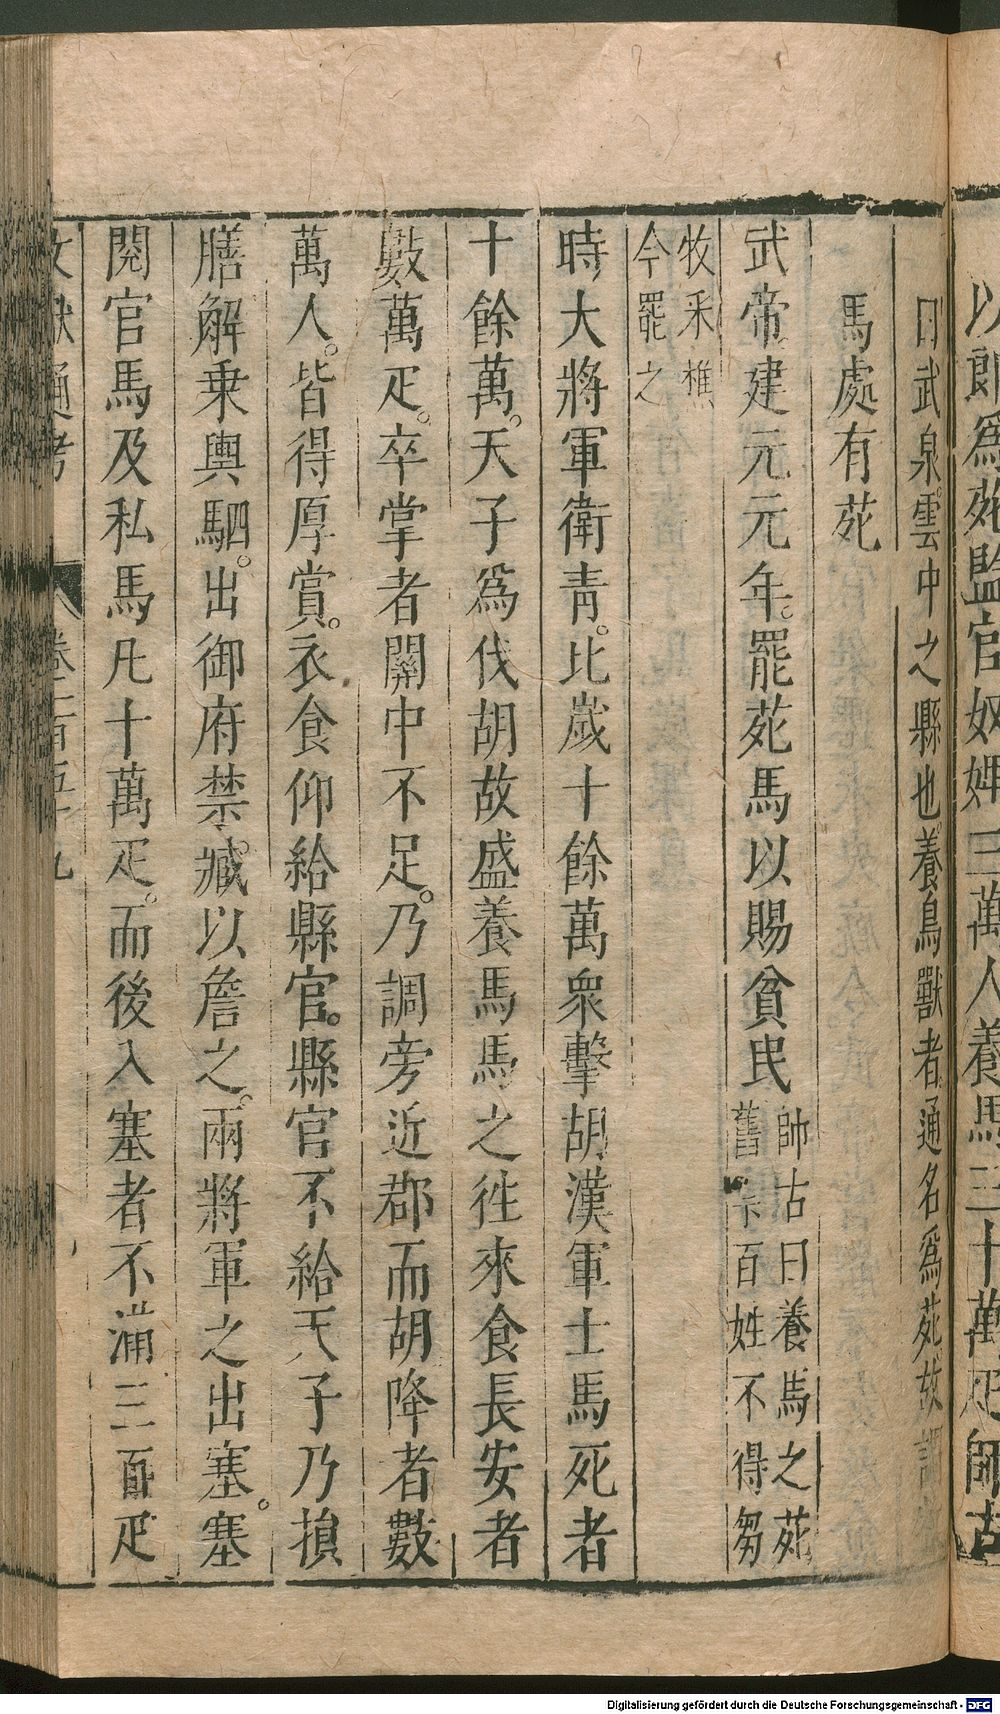 以郎爲苑監官奴婢三萬人養馬三十萬疋師古
曰武泉雲中之縣也養鳥獸者通名爲苑故謂
馬處有苑
武帝建元元年罷苑馬以賜貧民師古曰養馬之苑
舊禁百姓不得芻
牧釆樵
今罷之
時大將軍衛青比歲十餘萬衆擊胡漢軍士馬死者
十餘萬天子爲伐胡故盛養馬馬之徃來食長安者
數萬疋卒掌者關中不足乃調旁近郡而胡降者數
萬人皆得厚賞衣食仰給縣官縣官不給天子乃損
膳解乗輿駟出御府禁臧以詹之兩將軍之出塞塞
閱官馬及私馬凡十萬疋而後入塞者不滿三百疋
文獻通考 卷一百五十九
Digitalisierung gefördert durch die Deutsche Forschungsgemeinschaft - DFG